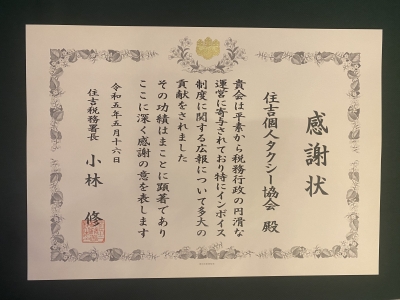 感謝状
住吉個人タクシー協会 殿
貴会は平素から税務行政の円滑な
運営に寄与されており特にインボイス
制度に関する広報について多大の
貢献をされました
その功績はまことに顕著であり
ここに深く感謝の意を表します
令和五年五月十六日
住吉税務署長 小林 修